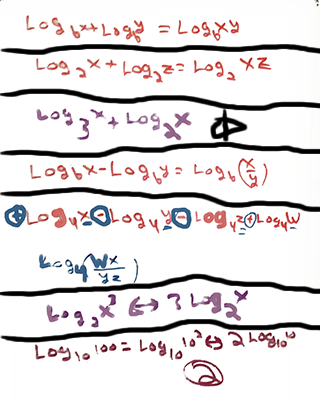 Log_b x + Log_b y = Log_b xy
Log_2 x + Log_2 z = Log_2 xz
Log_3 x + Log_2 x
Log_b x - Log_b y = Log_b (x/y)
+ Log_4 x - Log_4 y - Log_4 z + Log_4 w
Log_4 (wx/yz)
Log_2 x^3 ↔ 3 Log_2 x
Log_10 100 = Log_10 10^2 ↔ 2 Log_10 10
2